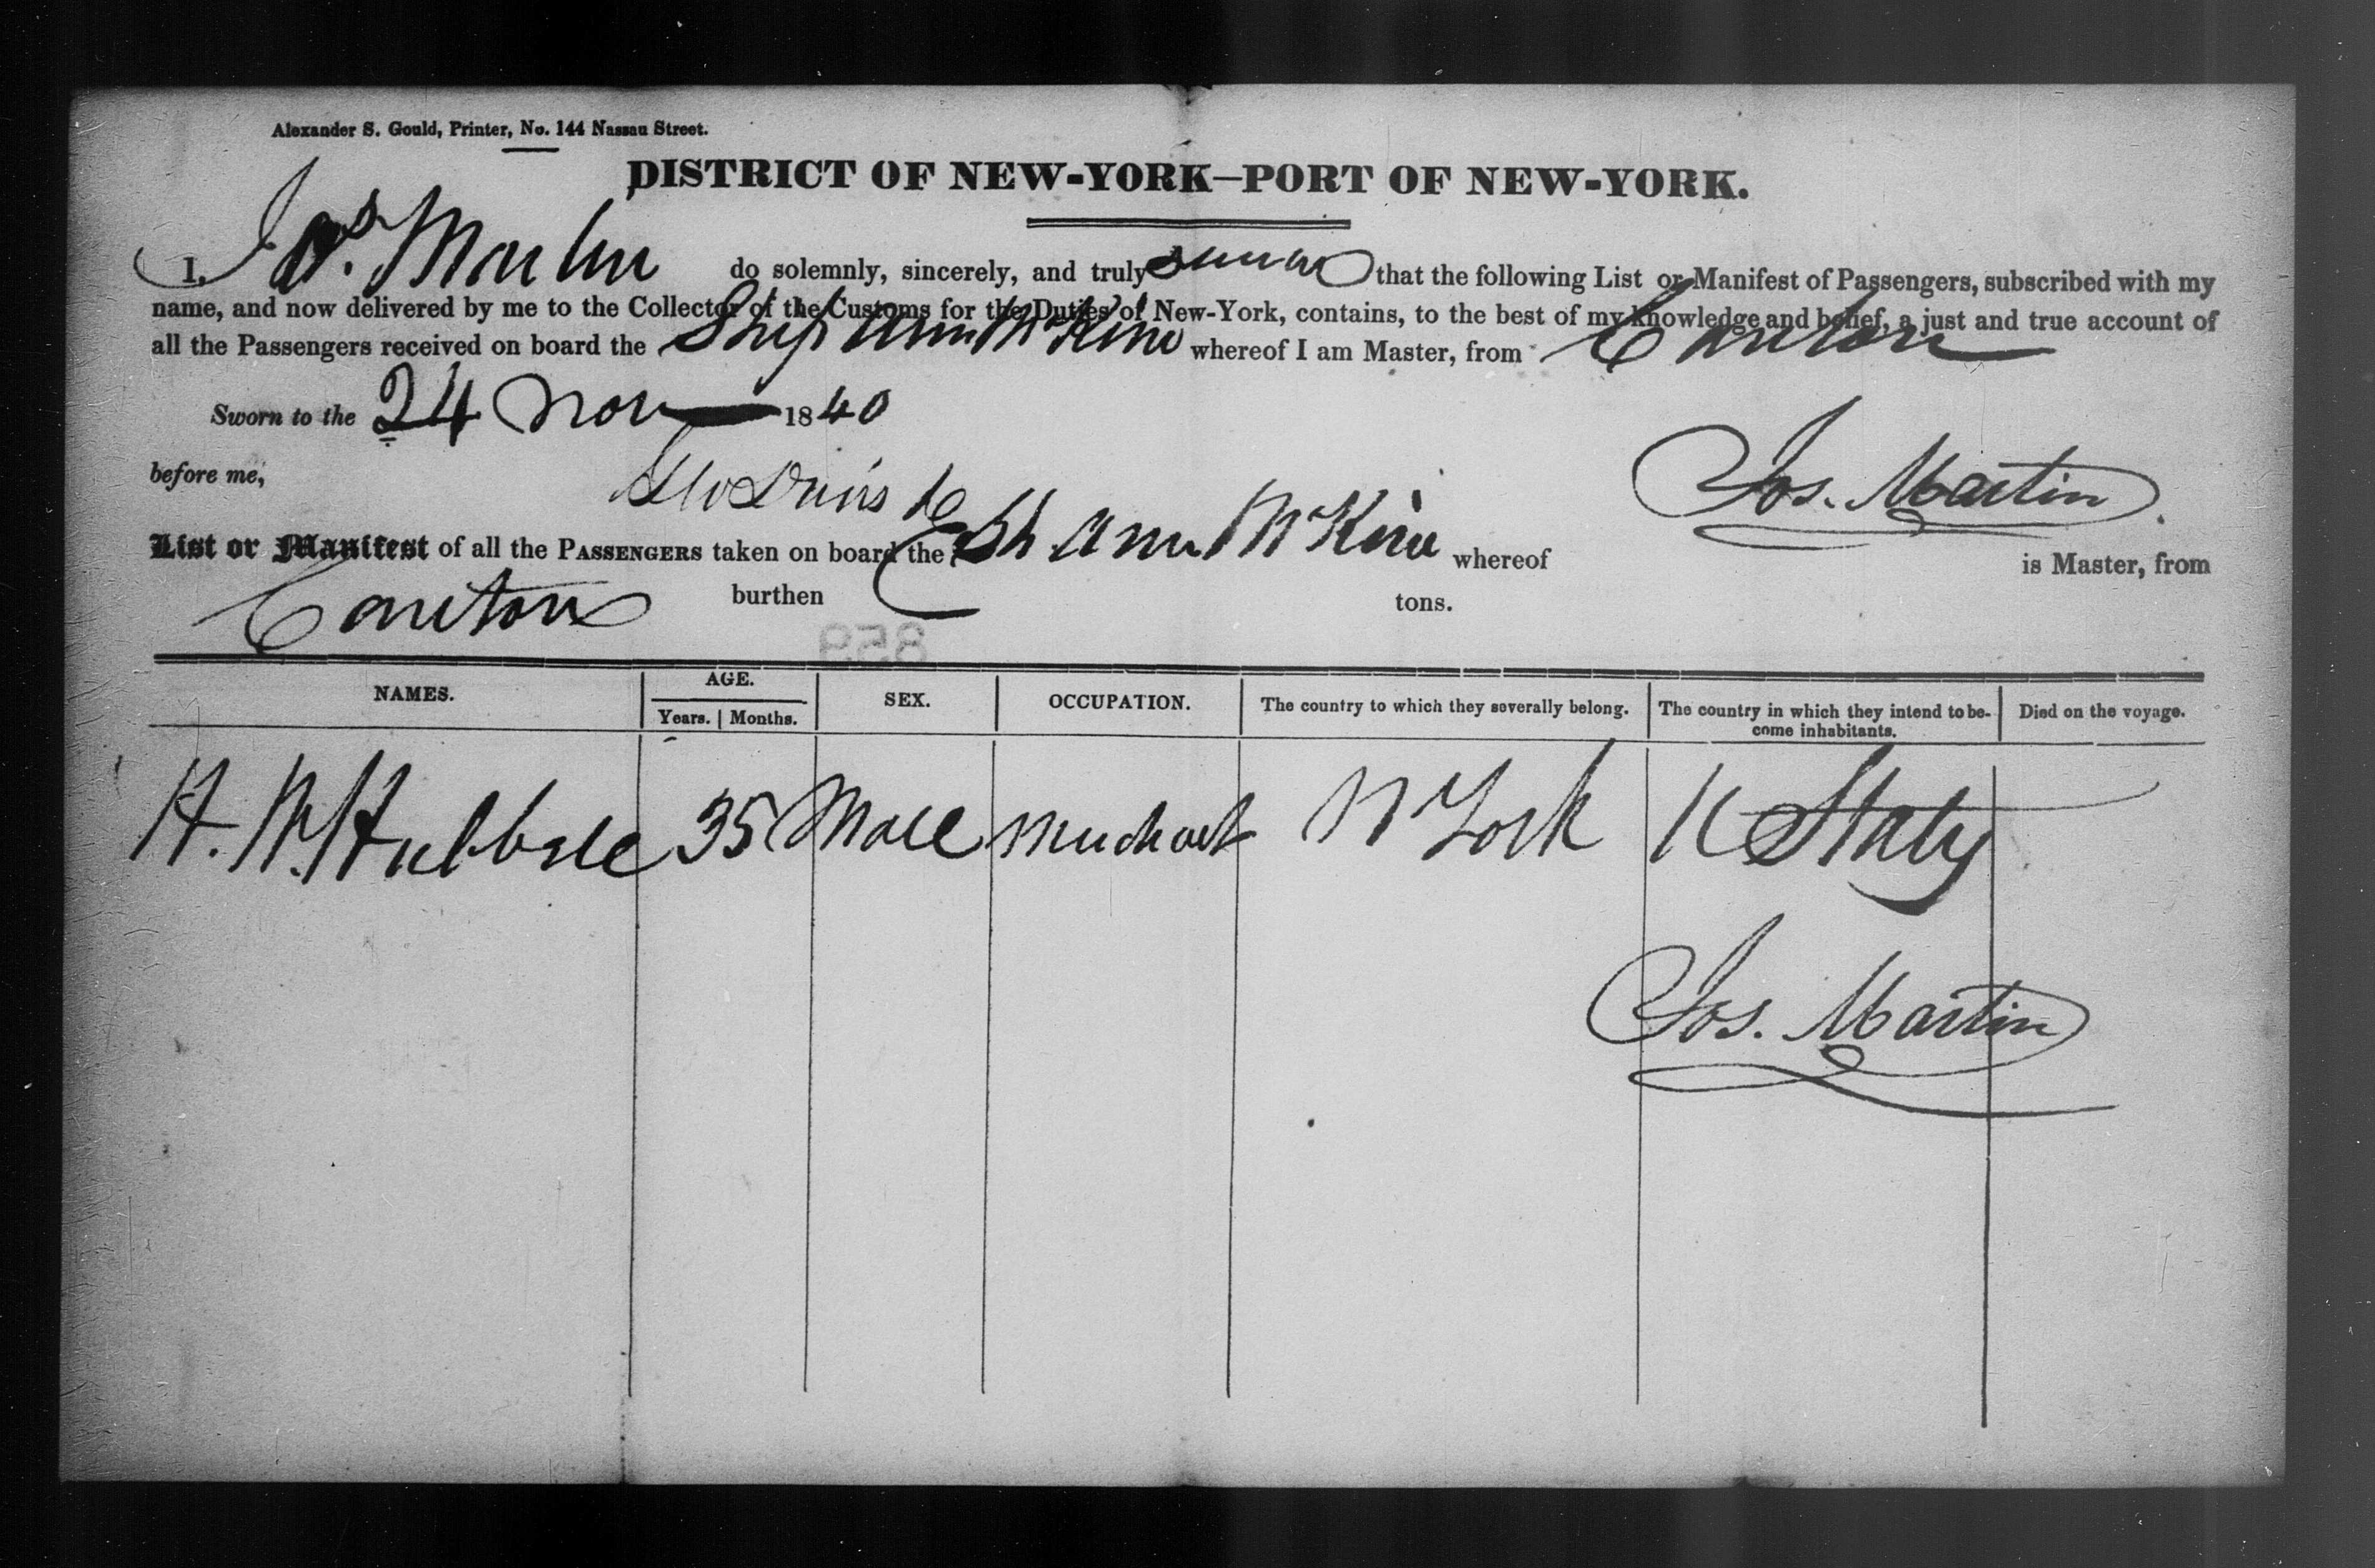 Alexander S. Gould, Printer, No. 144 Nassau Street.
DISTRICT OF NEW-YORK—PORT OF NEW-YORK.
I, Jos. Martin do solemnly, sincerely, and truly swear that the following List or Manifest of Passengers, subscribed with my
name, and now delivered by me to the Collector of the Customs for the Duties of New-York, contains, to the best of my knowledge and belief, a just and true account of
all the Passengers received on board the Ship Ann McKim whereof I am Master, from Canton
Sworn to the 24 Nov 1840
before me,
Jos. Martin
List or Manifest of all the PASSENGERS taken on board the Sh Ann McKim whereof is Master, from
Canton burthen tons.
859
NAMES. AGE. SEX. OCCUPATION. The country to which they severally belong. The country in which they intend to be- Died on the voyage.
Years. Months. come inhabitants.
H. 35 Male Merchant N York U States
Jos. Martin